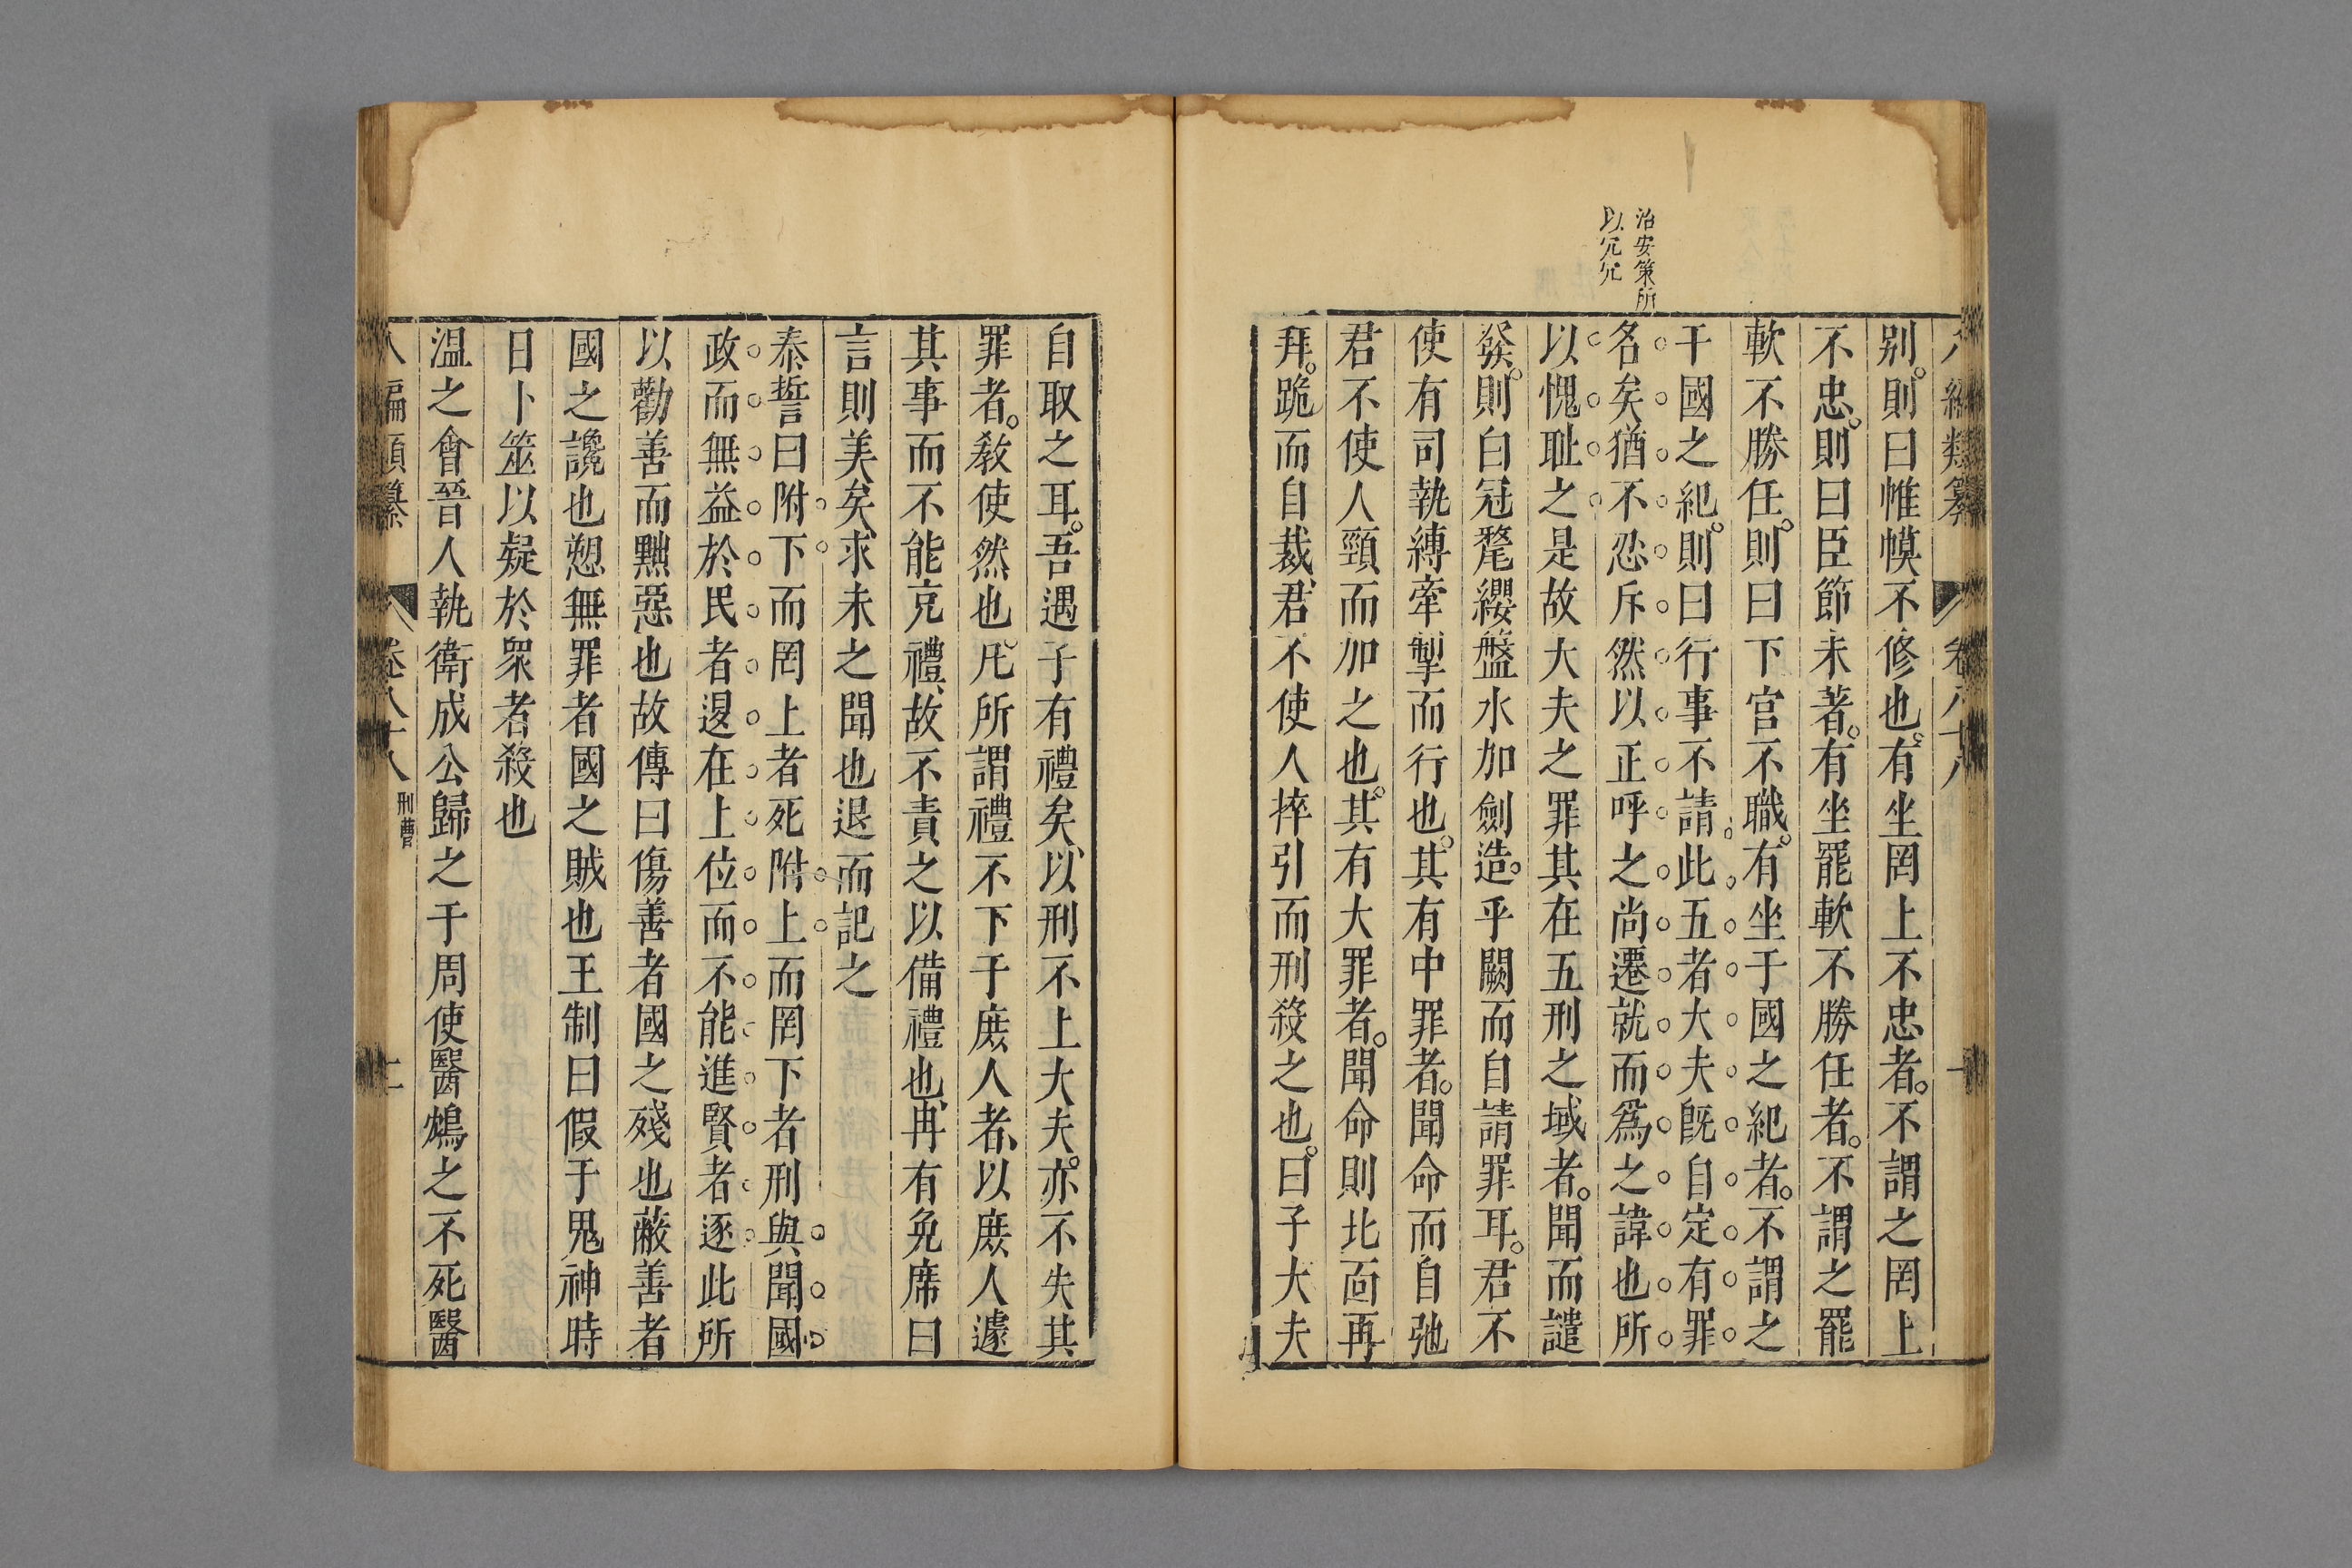 治安策所
以冗冗
八編類纂 卷八十八 一
别。則曰帷幙不修也。有坐罔上不忠者。不謂之罔上
不忠。則曰臣節未著。有坐罷軟不勝任者。不謂之罷
軟不勝任。則曰下官不職。有坐于國之紀者。不謂之
干國之紀。則曰行事不請。此五者大夫既自定有罪
名矣猶不忍斥然以正呼之尚遷就而爲之諱也所
以愧耻之是故大夫之罪其在五刑之域者。聞而譴
發。則白冠氂纓盤水加劍造。乎闕而自請罪耳。君不
使有司執縛牽掣而行也。其有中罪者。聞命而自弛
君不使人頸而加之也。其有大罪者。聞命則北靣再
拜。跪而自裁、君不使人捽引而刑殺之也。曰子大夫
自取之耳。吾遇子有禮矣、以刑不上大夫。亦不失其
罪者。教使然也。凡所謂禮不下于庶人者、以庶人遽
其事而不能克禮、故不責之以備禮也、冉有免席曰
言則美矣、求未之聞也退而記之
泰誓曰附下而罔上者死附上而罔下者刑與聞國
政而無益於民者退在上位而不能進賢者逐此所
以勸善而黜惡也故傳曰傷善者國之殘也蔽善者
國之讒也愬無罪者國之賊也王制曰假于鬼神時
日卜筮以疑於衆者殺也
溫之會晉人執衛成公歸之于周使醫鴆之不死醫
八編類纂 卷八十八 刑曹 二